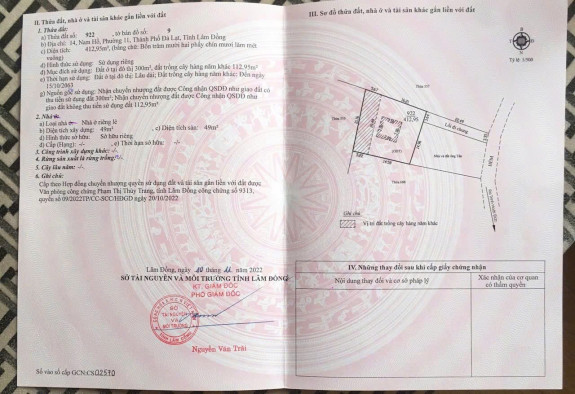 II. Thửa đất, nhà ở và tài sản khác gắn liền với đất
1. Thửa đất:
a) Thửa đất số: 922 , tờ bản đồ số: 9
b) Địa chỉ: 14, Nam Hồ, Phường 11, Thành Phố Đà Lạt, Tỉnh Lâm Đồng
c) Diện tích: 412,95m², (bằng chữ: Bốn trăm mười hai phẩy chín mươi lăm mét
vuông)
d) Hình thức sử dụng: Sử dụng riêng
đ) Mục đích sử dụng: Đất ở tại đô thị 300m², đất trồng cây hàng năm khác 112.95m²
e) Thời hạn sử dụng: Đất ở tại đô thị: Lâu dài; Đất trồng cây hàng năm khác: Đến ngày
15/10/2063
g) Nguồn gốc sử dụng: Nhận chuyển nhượng đất được Công nhận QSDĐ như giao đất có
thu tiền sử dụng đất 300m²; Nhận chuyển nhượng đất được Công nhận QSDĐ như
giao đất không thu tiền sử dụng đất 112,95m²
2. Nhà ở:
a) Loại nhà ở: Nhà ở riêng lẻ
b) Diện tích xây dựng: 49m² , c) Diện tích sàn: 49m²
d) Hình thức sở hữu: Sở hữu riêng
đ) Cấp (Hạng): -/- , e) Thời hạn sở hữu: -/-
3. Công trình xây dựng khác: -/-
4. Rừng sản xuất là rừng trồng: -/-
5. Cây lâu năm: -/-
6. Ghi chú:
Cấp theo Hợp đồng chuyển nhượng quyền sử dụng đất và tài sản gắn liền với đất được
Văn phòng công chứng Phạm Thị Thùy Trang, tỉnh Lâm Đồng công chứng số 9313,
quyển số 09/2022TP/CC-SCC/HĐGD ngày 20/10/2022.
Lâm Đồng, ngày tháng 2022
SỞ TÀI NGUYÊN VÀ MÔI TRƯỜNG TỈNH LÂM ĐỒNG
KT. GIÁM ĐỐC
PHÓ GIÁM ĐỐC
SỞ
TÀI NGUYÊN
VÀ
MÔI TRƯỜNG
Nguyễn Văn Trãi
Số vào sổ cấp GCN:CS02570
III. Sơ đồ thửa đất, nhà ở và tài sản khác gắn liền với đất
Tỷ lệ: 1/500
922
412,95
Lối đi chung
Ghi chú:
Vị trí đất trồng cây hàng năm khác
IV. Những thay đổi sau khi cấp giấy chứng nhận
Nội dung thay đổi và cơ sở pháp lý
Xác nhận của cơ quan
có thẩm quyền